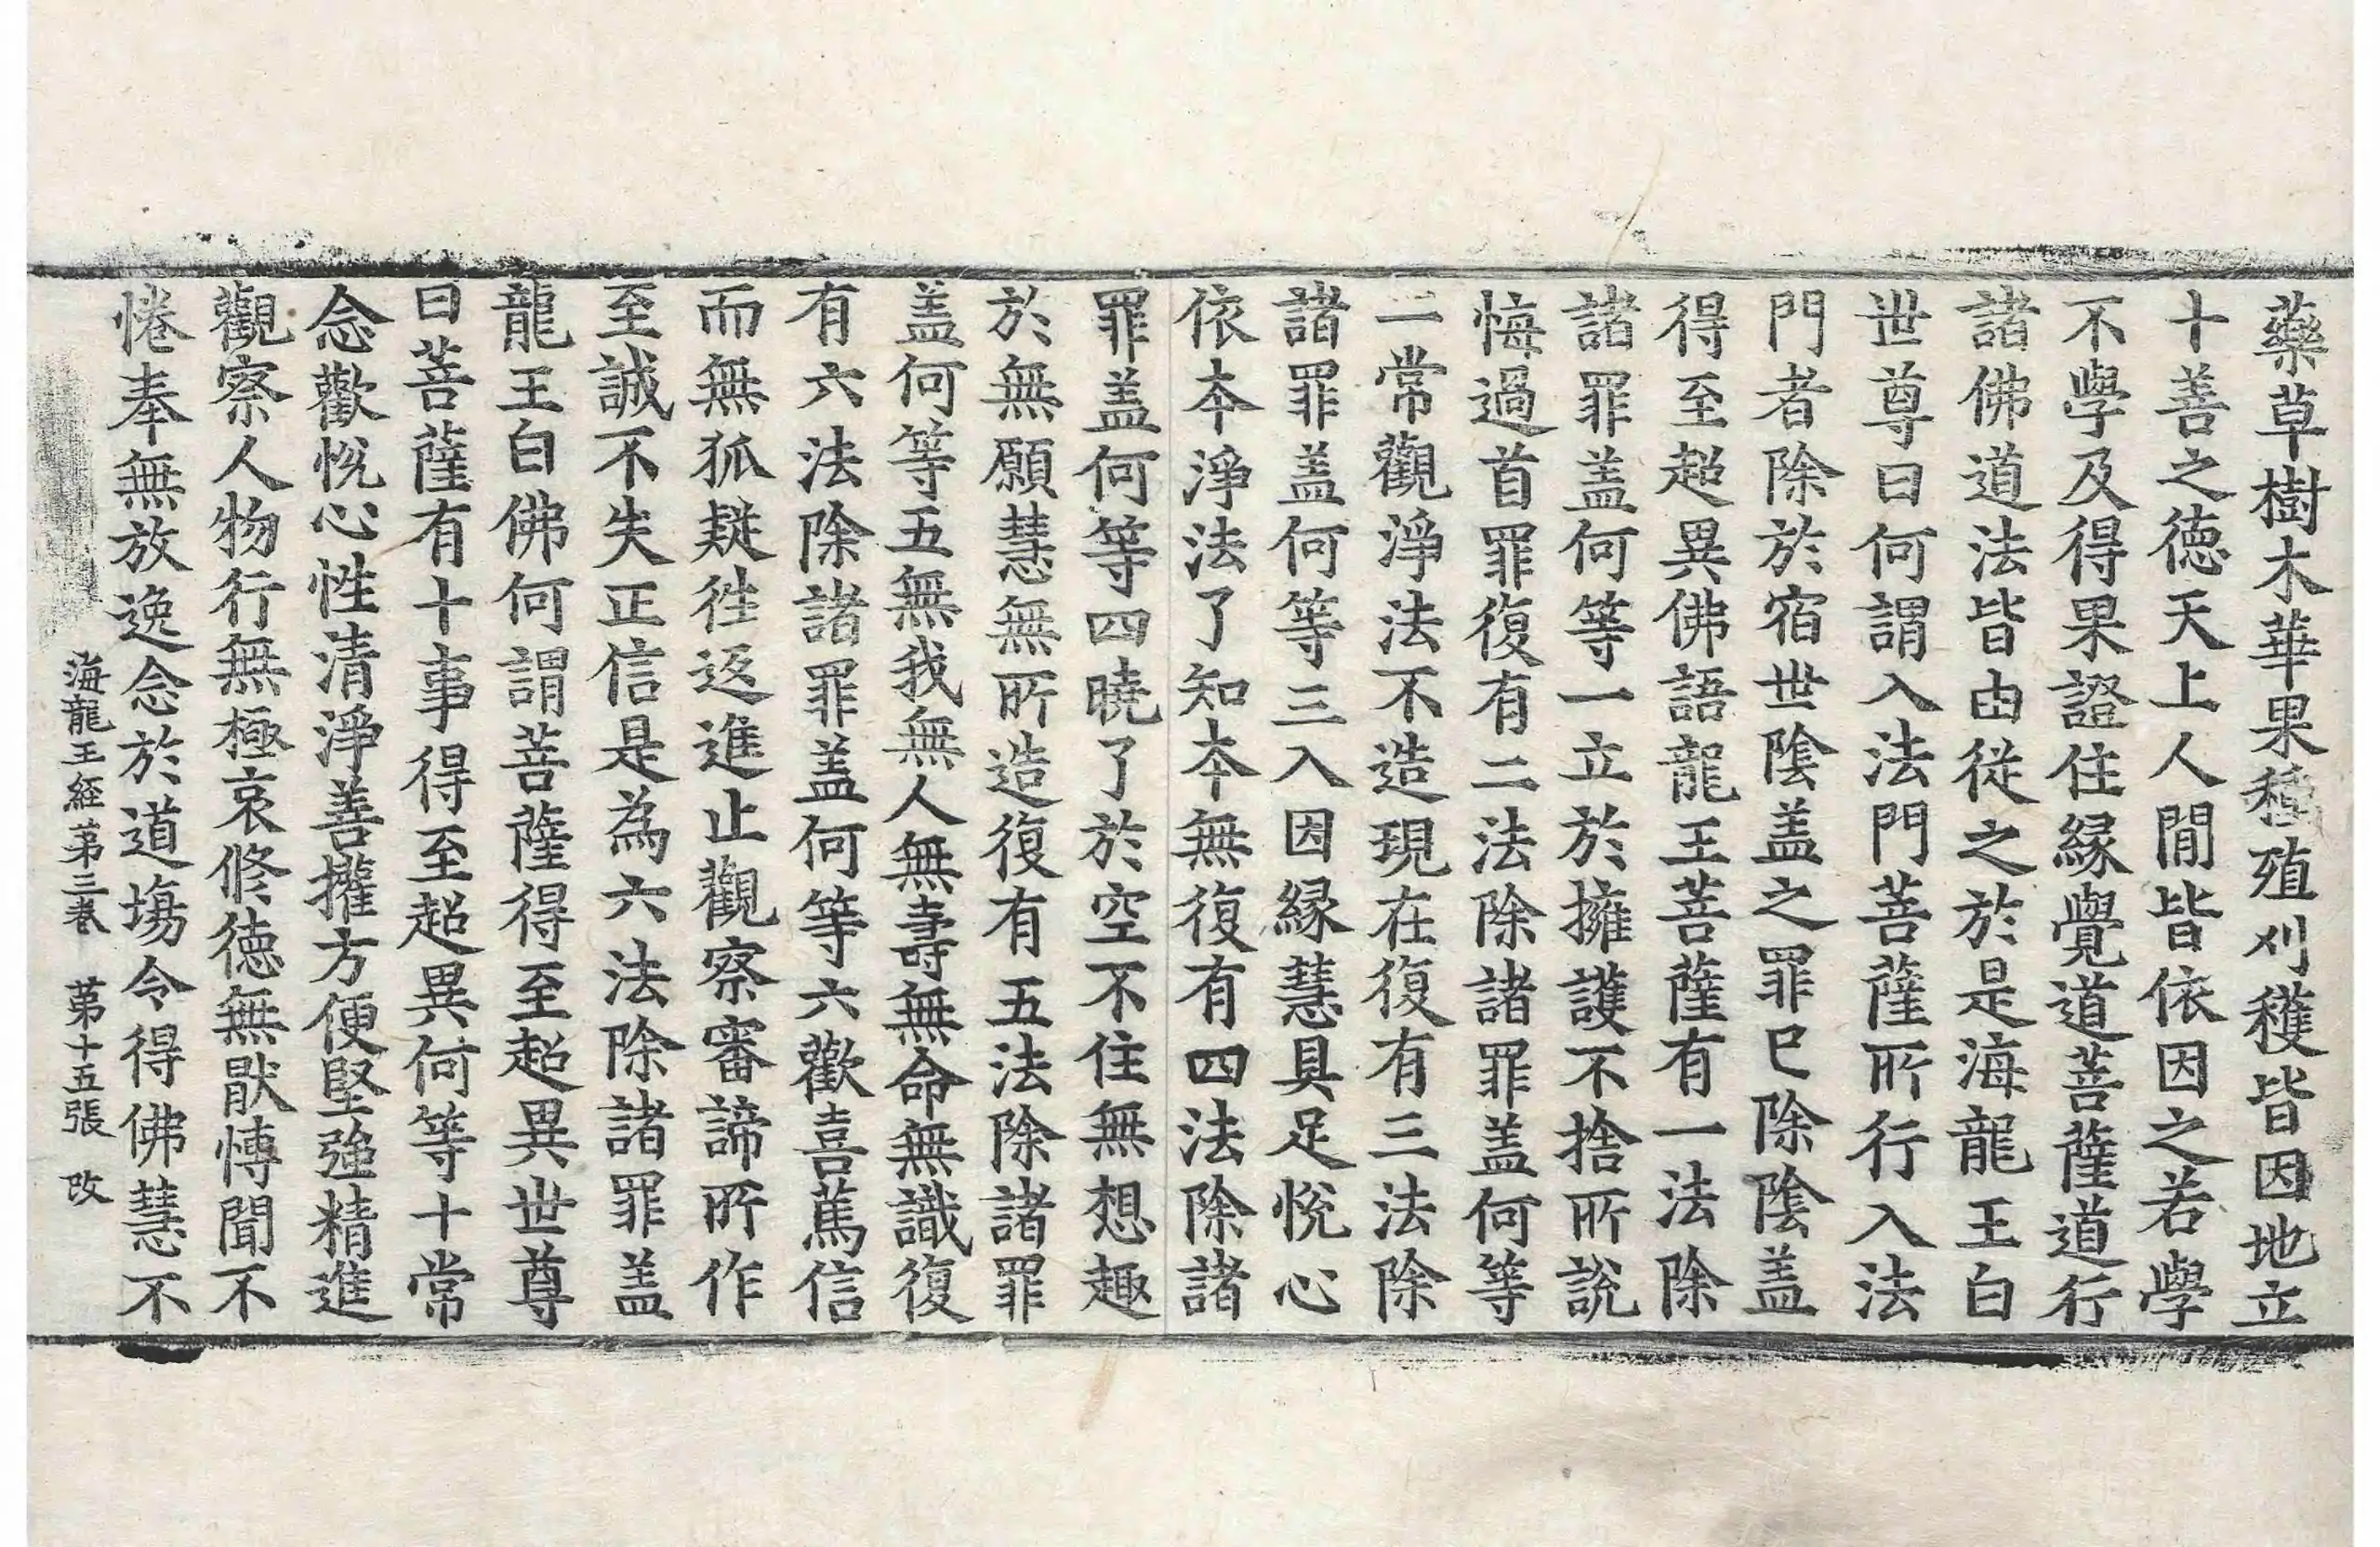 藥草樹木華果種殖刈穫皆因地立
十善之德天上人閒皆依因之若學
不學及得果證住緣覺道菩薩道行
諸佛道法皆由從之於是海龍王白
世尊曰何謂入法門菩薩所行入法
門者除於宿世陰盖之罪已除陰盖
得至超異佛語龍王菩薩有一法除
諸罪盖何等一立於擁護不捨所說
悔過首罪復有二法除諸罪盖何等
二常觀淨法不造現在復有三法除
諸罪盖何等三入因緣慧具足悅心
依本淨法了知本無復有四法除諸
罪盖何等四曉了於空不住無想趣
於無願慧無所造復有五法除諸罪
盖何等五無我無人無壽無命無識復
有六法除諸罪盖何等六歡喜篤信
而無狐疑徃返進止觀察審諦所作
至誠不失正信是為六法除諸罪盖
龍王白佛何謂菩薩得至超異世尊
曰菩薩有十事得至超異何等十常
念歡悅心性清淨善攉方便堅強精進
觀察人物行無極哀修德無猒博聞不
惓奉無放逸念於道場令得佛慧不
海龍王經第三卷 第十五張 改